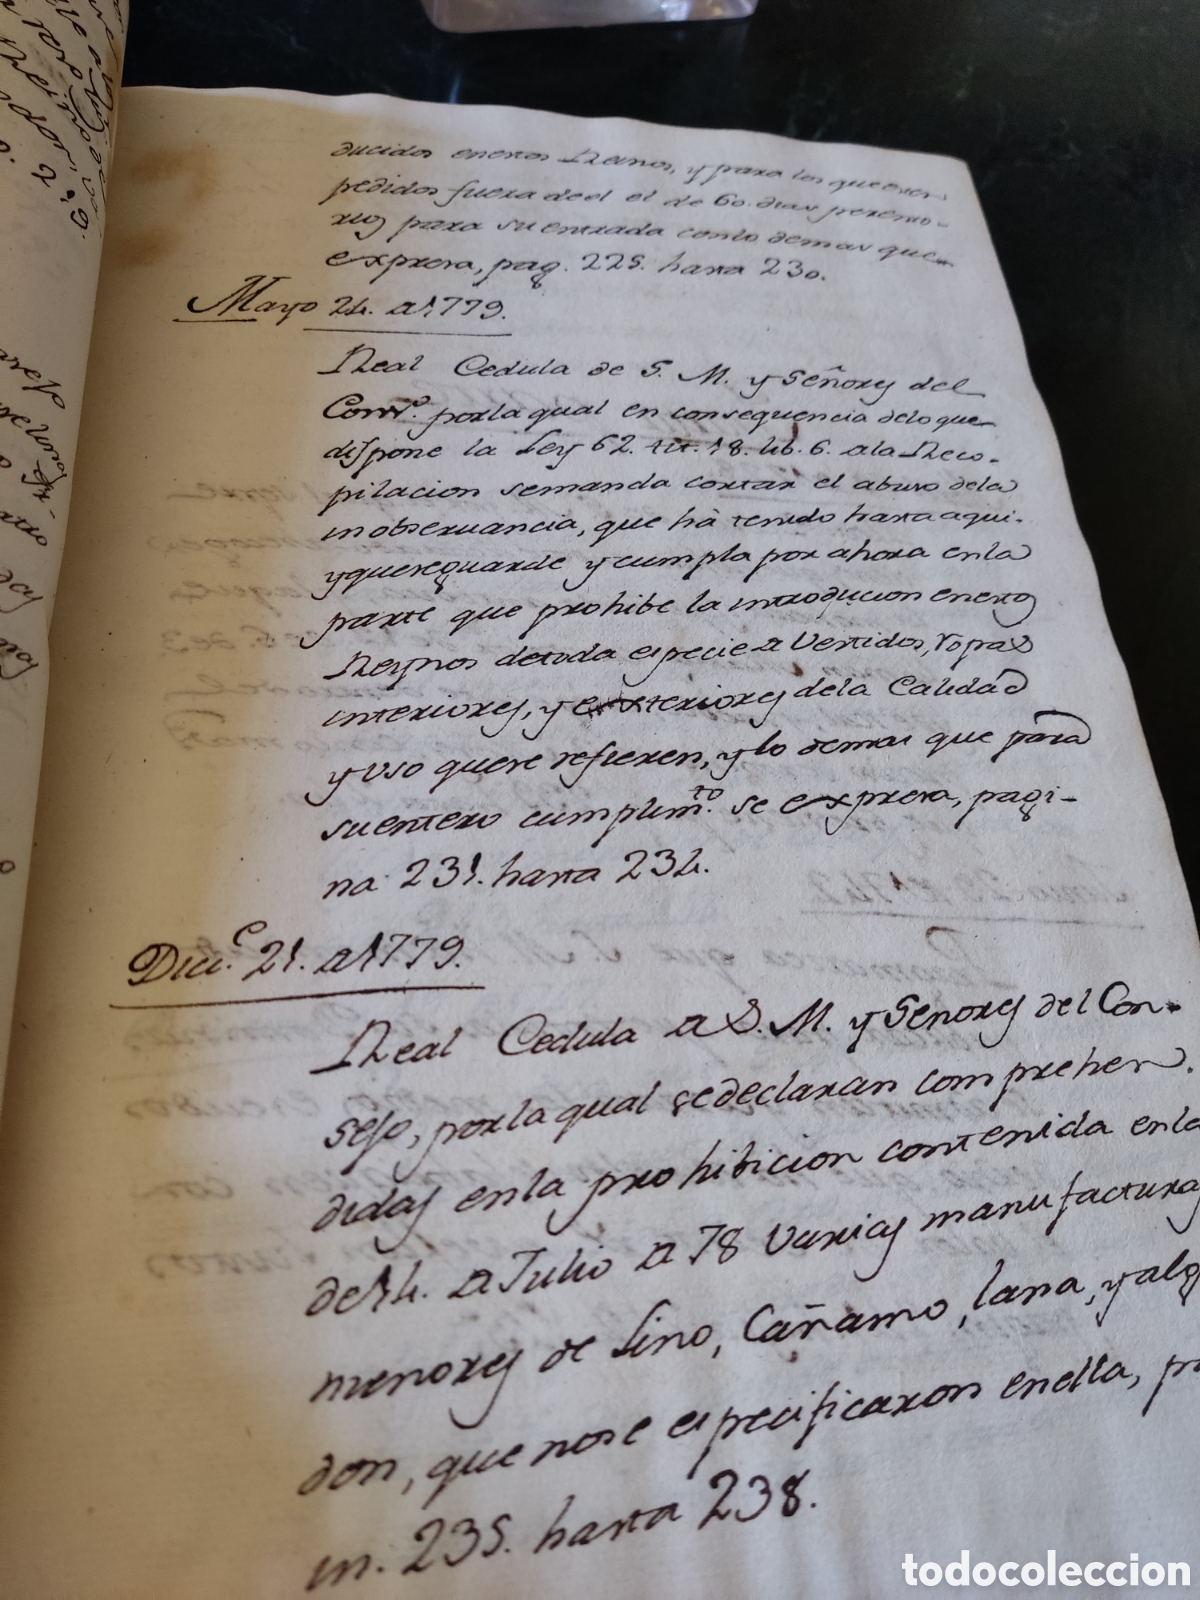 ducidos enestos Reinos, y para los que esten
pedidos fuera deel el de 60. dias peremto-
rios para su entrada conlo demas que
expresa, pag. 225. hasta 230.
Mayo 24. a 1779.
Real Cedula de S. M. y Señores del
Cons.º porla qual en consequencia delo que
dispone la Ley 62. tit. 18. lib. 6. a la Reco-
pilacion semanda cortar el abuso dela
inobservancia, que hà tenido hasta aqui.
yqueseguarde y cumpla por ahora enla
parte que prohibe la introducion enestos
Reynos detoda especie a Vestidos, ropas
interiores, y exsteriores dela Calidad
y uso quese refieren, y lo demas que para
su entero cumplim.to se expresa, pagi-
na 231. hasta 234.
Dici.e 21. a 1779.
Real Cedula a S. M. y Señores del Con-
sejo, porla qual sedeclaran comprehen-
didas enla prohibicion contenida enla
de 14. a Julio a 78 Varias manufacturas
menores de Lino, Cañamo, lana, y alg
don, que nose especificaron enella, pa
in. 235. hasta 238.
todocoleccion